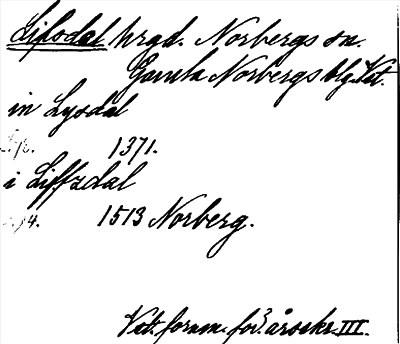 Lifsdal hrgd. Norbergs sn.
Gamla Norbergs blg. Vst.
in Lysdal
1371.
i Liffzdal
1513 Norberg.
Vst. fornm. för. årsskr. III.